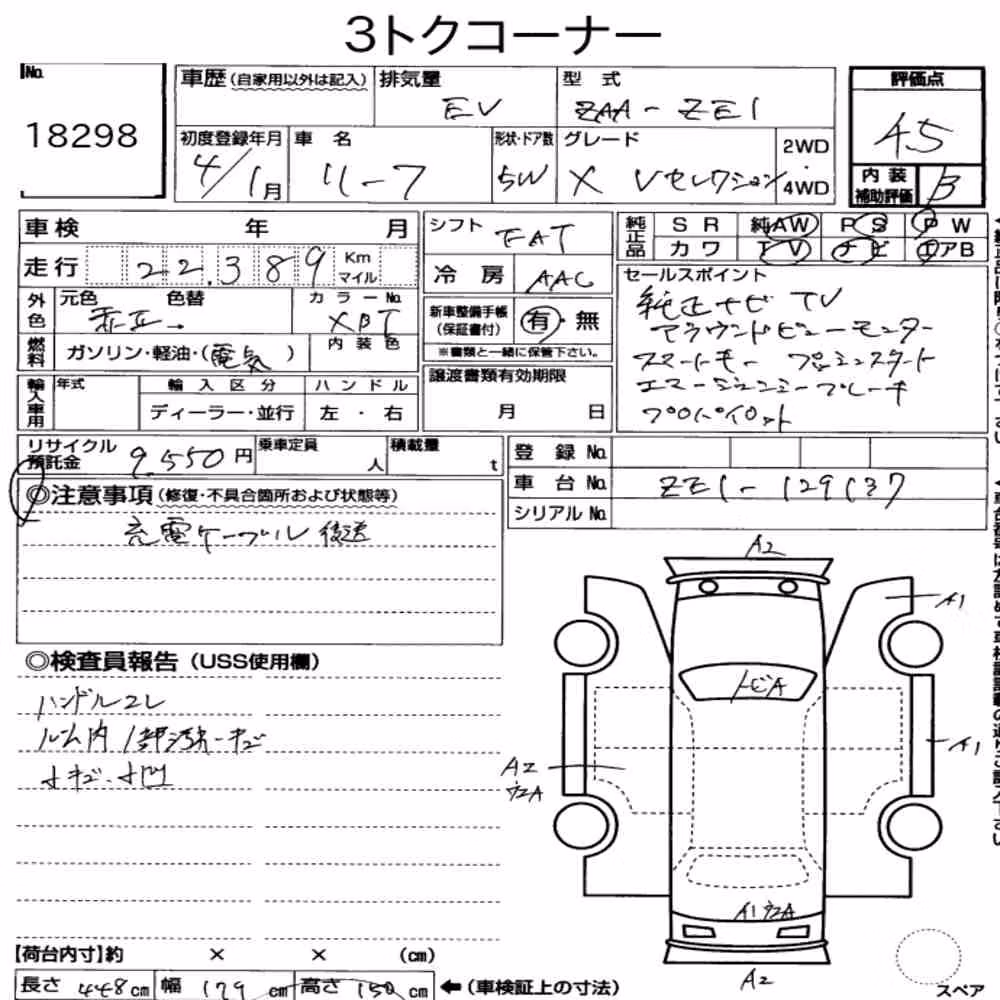 3トクコーナー
No.
18298
車歴(自家用以外は記入)
排気量
EV
型式
ZAA-ZE1
評価点
4.5
初度登録年月
4/1月
車名
リーフ
形状・ドア数
5W
グレード
X Vセレクション
2WD
・
4WD
内装
補助評価
B
車検 年 月
走行 22,389 Km
マイル
シフト
FAT
冷房
AAC
純正品
SR 純AW PS PW
カワ TV ナビ エアB
セールスポイント
純正ナビ TV
アラウンドビューモニター
スマートキー プッシュスタート
エマージェンシーブレーキ
プロパイロット
外色
元色 色替
カラーNo.
XBT
内装色
燃料
ガソリン・軽油・(電気)
新車整備手帳
(保証書付)
有・無
※書類と一緒に保管下さい。
輸入車用
年式
輸入区分
ハンドル
ディーラー・並行
左・右
譲渡書類有効期限
月 日
リサイクル
預託金
9,550円
乗車定員
人
積載量
t
登録No.
車台No.
ZE1-129137
シリアルNo.
◎注意事項(修復・不具合箇所および状態等)
充電ケーブル後送
◎検査員報告(USS使用欄)
ハンドルスレ
ルーム内1部汚れ・キズ
小キズ・小凹
A2
A1
トビA
A1
A2
ウスA
A1 ウスA
A2
【荷台内寸】約 × × (cm)
長さ 448cm 幅 179cm 高さ 150cm ←(車検証上の寸法)
スペア